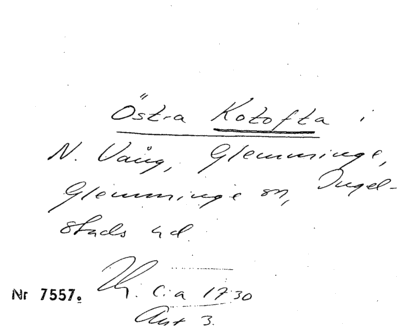 Östra Kotofta i
N. Vång, Glemminge,
Glemminge sn, Ingel-
stads hd.
Nr 7557. Th. c:a 1730
Ant 3.